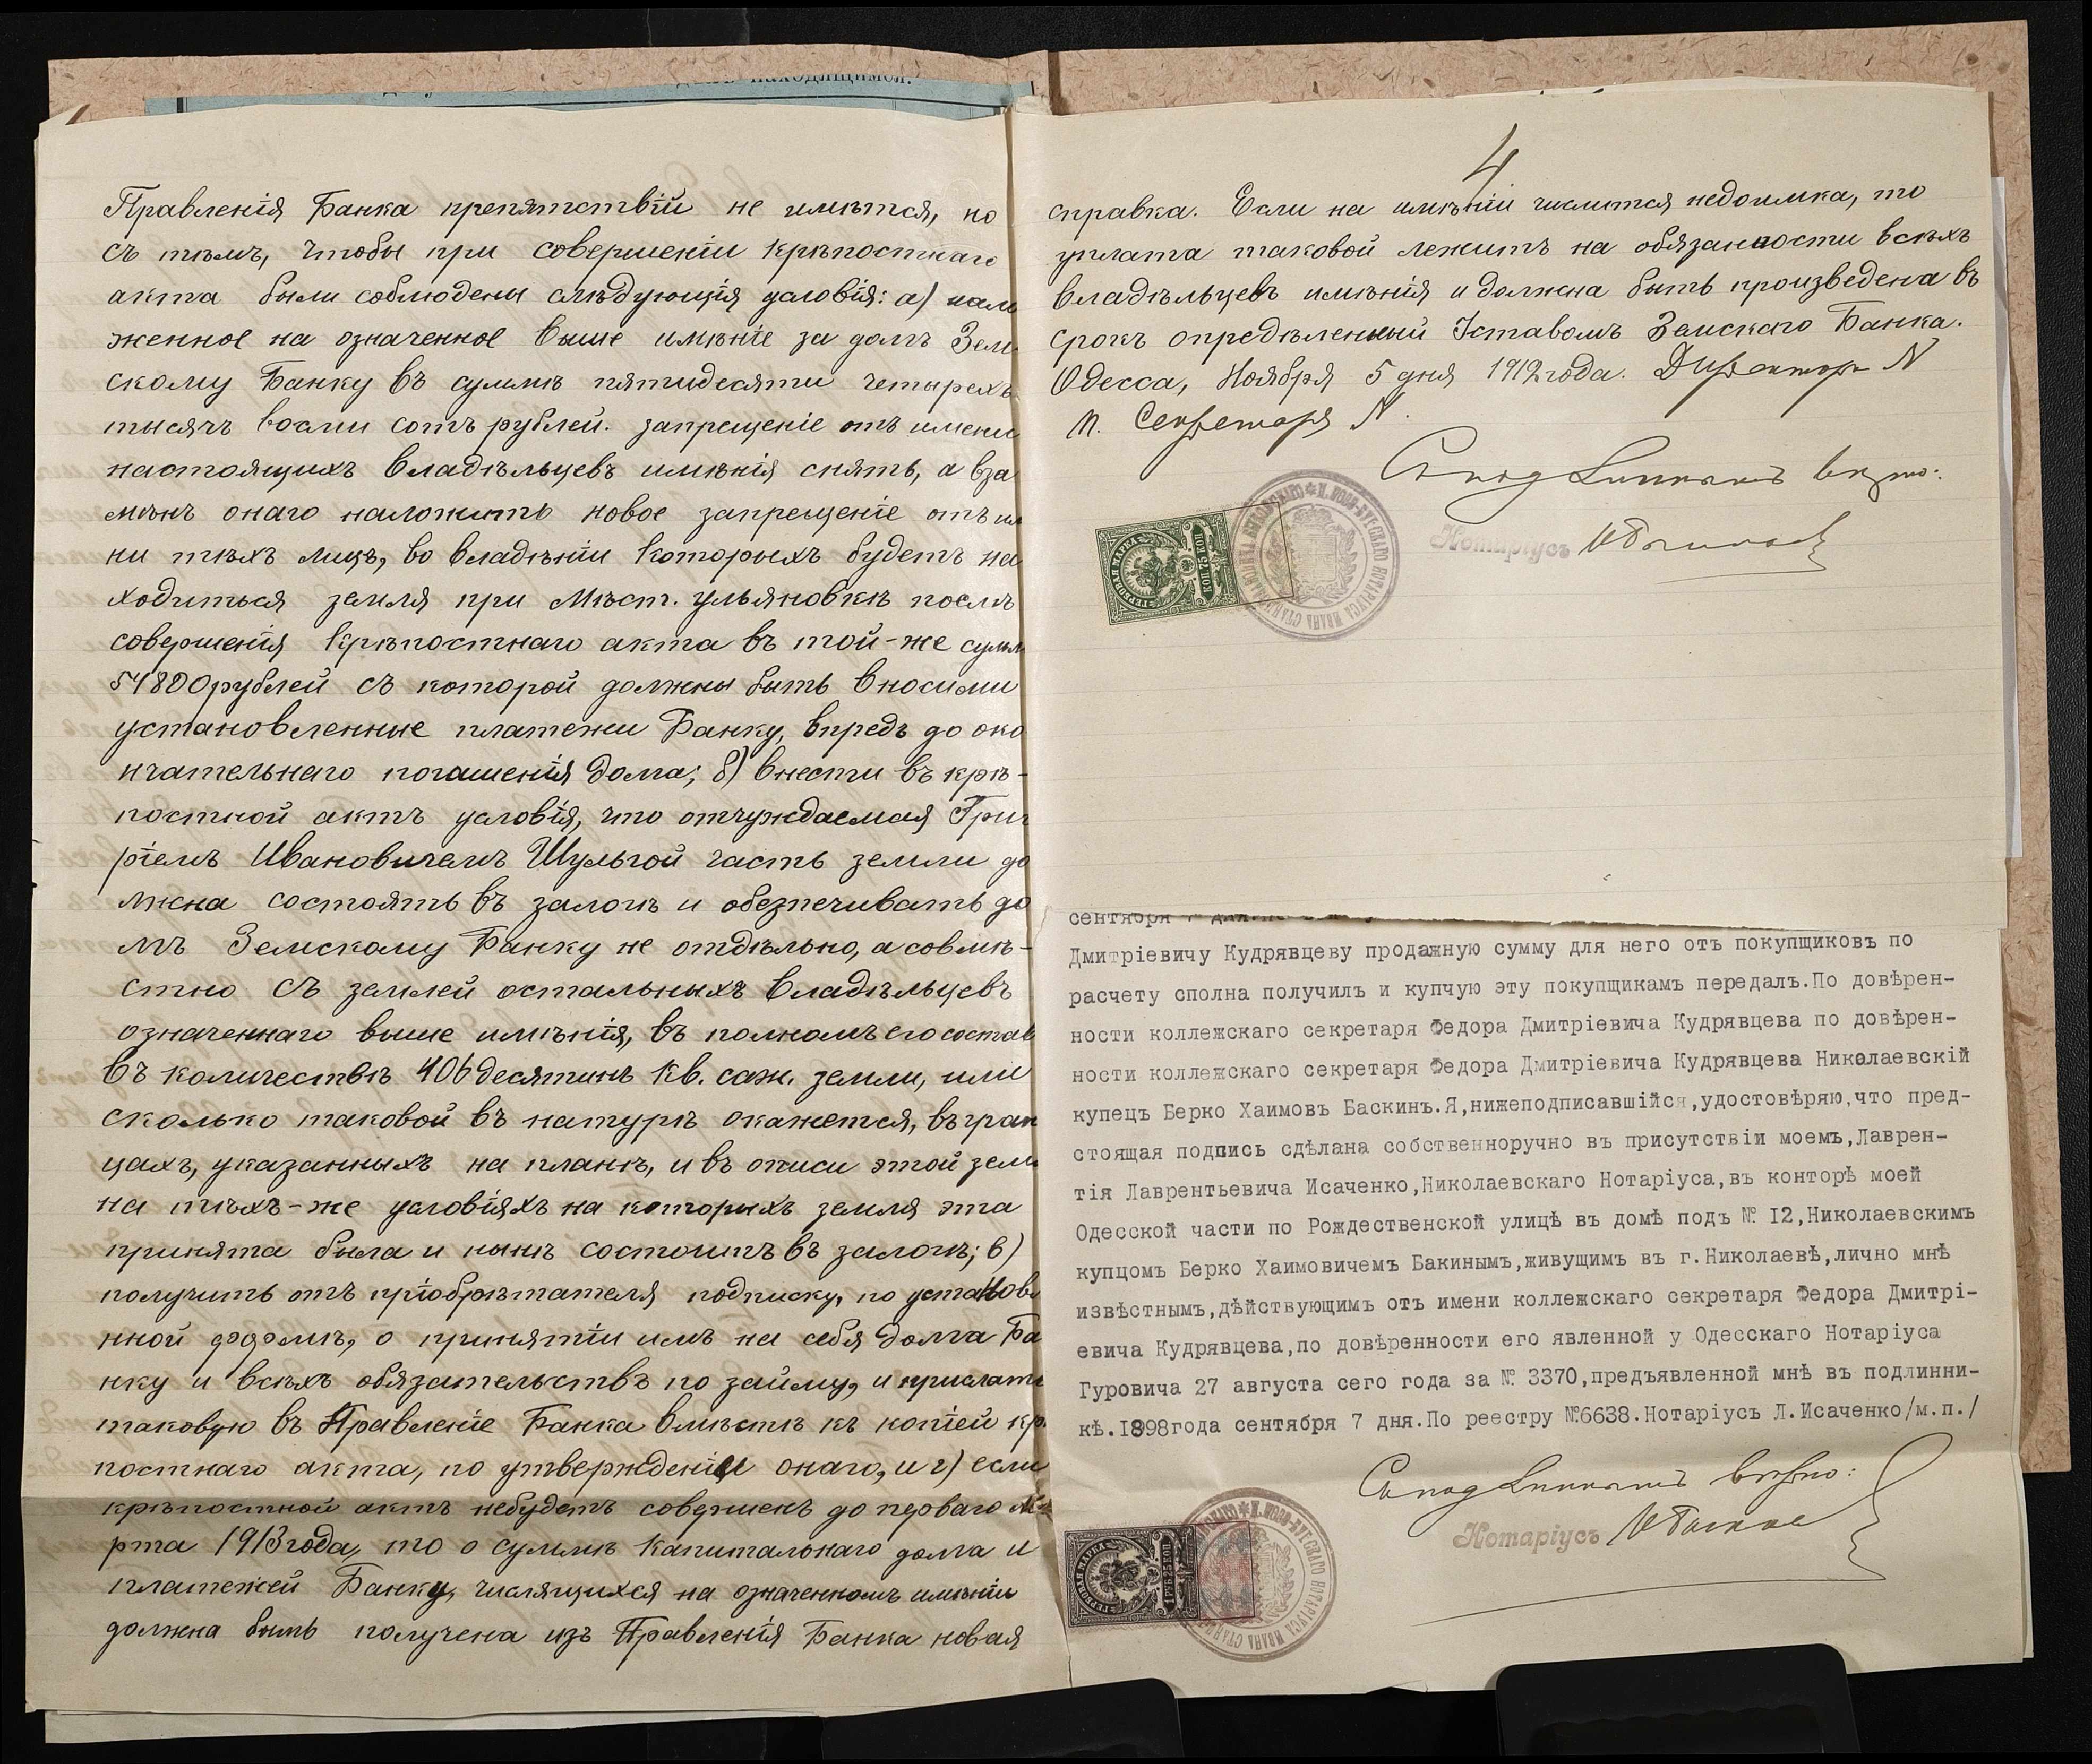 находящимся.
Правленія Банка препятствій не имѣется, но
съ тѣмъ, чтобы при совершеніи крѣпостнаго
акта были соблюдены слѣдующія условія: а) нало
женное на означенное выше имѣніе за долгъ Зем
скому Банку въ суммѣ пятидесяти четырехъ
тысячъ восми сотъ рублей. запрещеніе отъ имени
настоящихъ владѣльцевъ имѣнія снять, а вза
мѣнъ онаго наложить новое запрещеніе отъ им
ни тѣхъ лицъ, во владѣніи которыхъ будетъ на
ходиться земля при Мѣст. Ульяновкѣ послѣ
совершенія крѣпостнаго акта въ той-же сумм
54800 рублей съ которой должны быть вносими
установленные платежи Банку, впредь до око
нчательнаго погашенія долга; б) внести въ крѣ-
постной актъ условія, что отчуждаемая Григ
ріемъ Ивановичемъ Шульгой часть земли до
лжна состоять въ залогѣ и обезпечивать до
лгъ Земскому Банку не отдѣльно, а совмѣ-
стно съ землей остальныхъ владѣльцевъ
означеннаго выше имѣнія, въ полномъ его состав
въ количествѣ 406 десятинъ кв. саж. земли, или
сколько таковой въ натурѣ окажется, въ гран
цахъ, указанныхъ на планѣ, и въ описи этой земл
на тѣхъ-же условіяхъ на которыхъ земля эта
принята была и нынѣ состоитъ въ залогѣ; в)
получить отъ пріобрѣтателя подписку, по установл
нной формѣ, о принятіи имъ на себя долга Ба
нку и всѣхъ обязательствъ по займу, и прислать
таковую въ Правленіе Банка вмѣстѣ къ копіей кр.
постнаго акта, по утвержденіи онаго, и г) если
крѣпостной актъ небудетъ совершенъ до перваго Ма
рта 1913 года, то о суммѣ капитальнаго долга и
платежей Банку, числящихся на означенномъ имѣніи
должна быть получена изъ Правленія Банка новая
4
справка. Если на имѣніи числится недоимка, то
уплата таковой лежитъ на обязанности всѣхъ
владѣльцевъ имѣнія и должна быть произведена въ
срокъ опредѣленный Уставомъ Земскаго Банка.
Одесса, Ноября 5 дня 1912 года. Директоръ N
п. Секретаря N.
Съ подлиннымъ вѣрно:
Нотаріусъ
ГЕРБОВАЯ МАРКА
75 КОП
сентября
Дмитріевичу Кудрявцеву продажную сумму для него отъ покупщиковъ по
расчету сполна получилъ и купчую эту покупщикамъ передалъ.По довѣрен-
ности коллежскаго секретаря Федора Дмитріевича Кудрявцева по довѣрен-
ности коллежскаго секретаря Федора Дмитріевича Кудрявцева Николаевскій
купецъ Берко Хаимовъ Баскинъ.Я,нижеподписавшійся,удостовѣряю,что пред-
стоящая подпись сдѣлана собственноручно въ присутствіи моемъ,Лаврен-
тія Лаврентьевича Исаченко,Николаевскаго Нотаріуса,въ конторѣ моей
Одесской части по Рождественской улицѣ въ домѣ подъ № I2,Николаевскимъ
купцомъ Берко Хаимовичемъ Бакинымъ,живущимъ въ г.Николаевѣ,лично мнѣ
извѣстнымъ,дѣйствующимъ отъ имени коллежскаго секретаря Федора Дмитрі-
евича Кудрявцева,по довѣренности его явленной у Одесскаго Нотаріуса
Гуровича 27 августа сего года за № 3370,предъявленной мнѣ въ подлинни-
кѣ.I898года сентября 7 дня.По реестру №6638.Нотаріусъ Л.Исаченко/м.п./
Съ подлиннымъ вѣрно:
Нотаріусъ
ГЕРБОВАЯ МАРКА
1 РУБ.25 КОП